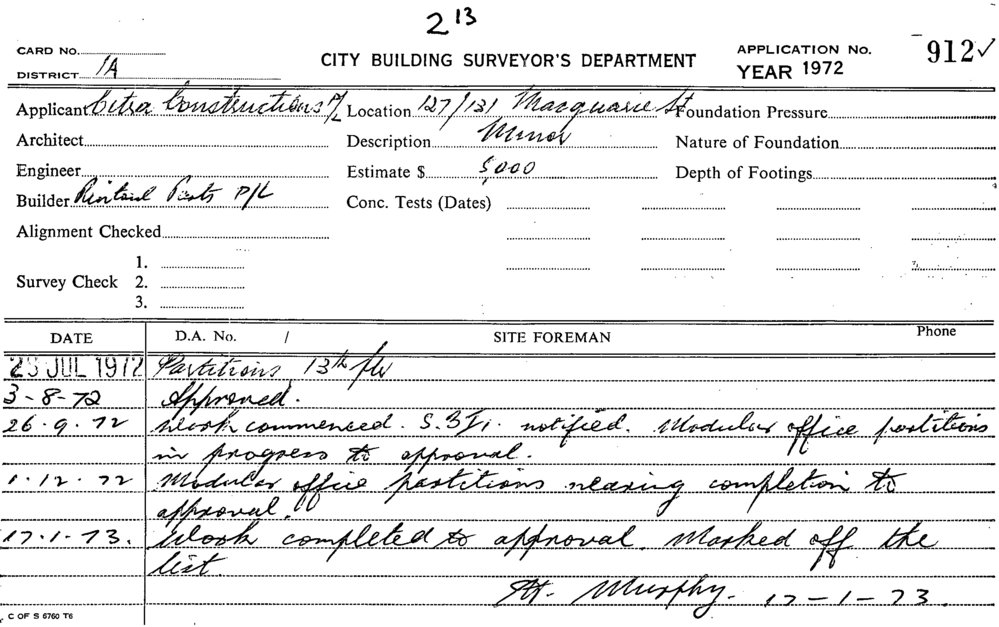 2 13
CARD No.
DISTRICT 1A
CITY BUILDING SURVEYOR'S DEPARTMENT
APPLICATION No. 912 ✓
YEAR 1972
Applicant Citra Constructions P/L Location 127/131 Macquarie St Foundation Pressure
Architect Description Minor Nature of Foundation
Engineer Estimate $ 5,000 Depth of Footings
Builder P/L Conc. Tests (Dates)
Alignment Checked
1.
Survey Check 2.
3.
DATE D.A. No. / SITE FOREMAN Phone
JUL 1972 Partitions 13th flr
3-8-72 Approved.
26.9.72 Work commenced. notified. Modular office partitions
in progress to approval.
1.12.72 Modular office partitions nearing completion to
approval.
17.1.73. Work completed to approval. Marked off the
list.
Murphy. 17-1-73.
C OF S 6760 T6